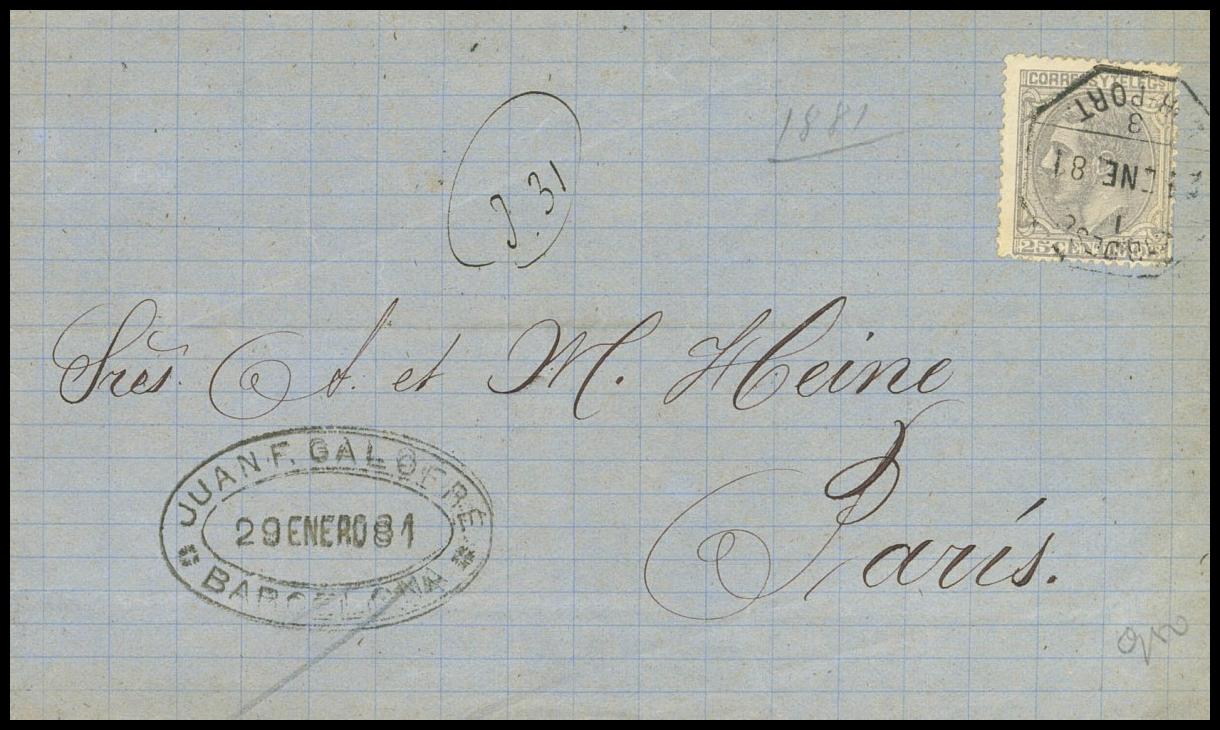 1881
J. 31
CORREOS Y TELEGS
PORT
3
ENE 81
1
25 CEN
Sres. A. et M. Heine
París.
JUAN F. GALOFRÉ
29 ENERO 81
BARCELONA